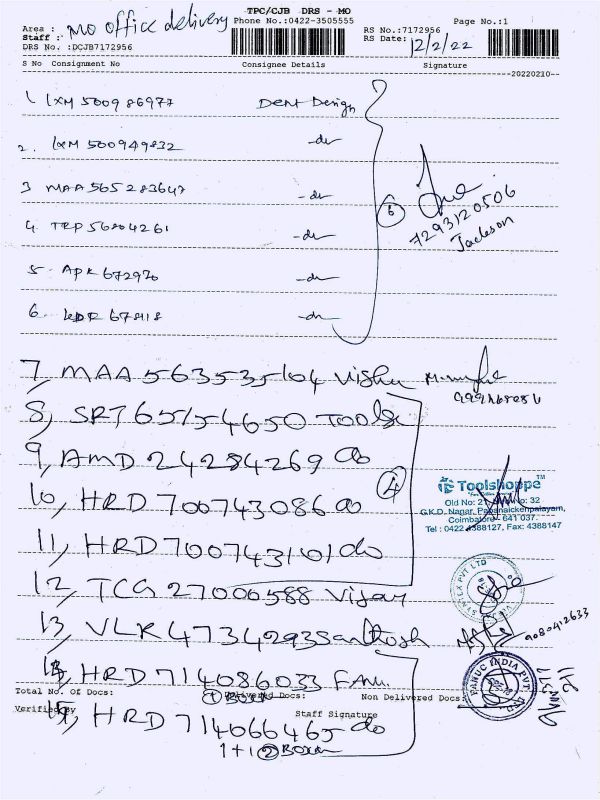 TPC/CJB DRS - MO
Area : MO office delivery
Phone No.:0422-3505555
Page No.:1
Staff :
RS No.:7172956
DRS No. :DCJB7172956
RS Date: 12/2/22
S No Consignment No Consignee Details Signature
--20220210--
1. IXM 500986977 Dent Design
2. IXM 500949832 -do-
3 MAA 565283647 -do-
4. TRP 56804261 -do-
5. APK 672970 -do-
6. -do-
6
7293120506
Jackson
7, MAA 563535104 Vishu
8, SRT 65154650 Tools
9, AMD 24284269 do
4
10, HRD 700743086 do
Toolshoppe TM
Old No: 2 No: 32
G.K.D. Nagar, Pappanaickenpalayam,
Coimbatore - 641 037.
Tel : 0422 4388127, Fax: 4388147
11, HRD 700743101 do
12, TCG 27000588 Vijay
13, VLR 4734293 Santhosh
9080412633
14, HRD 714086033 FANU
FANUC INDIA PVT LTD
Total No. Of Docs: Delivered Docs: Non Delivered Docs:
1 Box
Verified By Staff Signature
15, HRD 714066465 do
1+1 2 Boxes